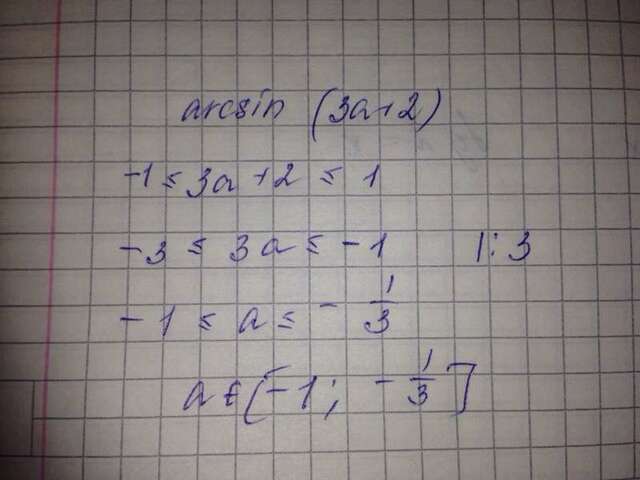 arcsin (3a+2)
-1 ≤ 3a+2 ≤ 1
-3 ≤ 3a ≤ -1 |:3
-1 ≤ a ≤ -1/3
a ∈ [-1; -1/3]